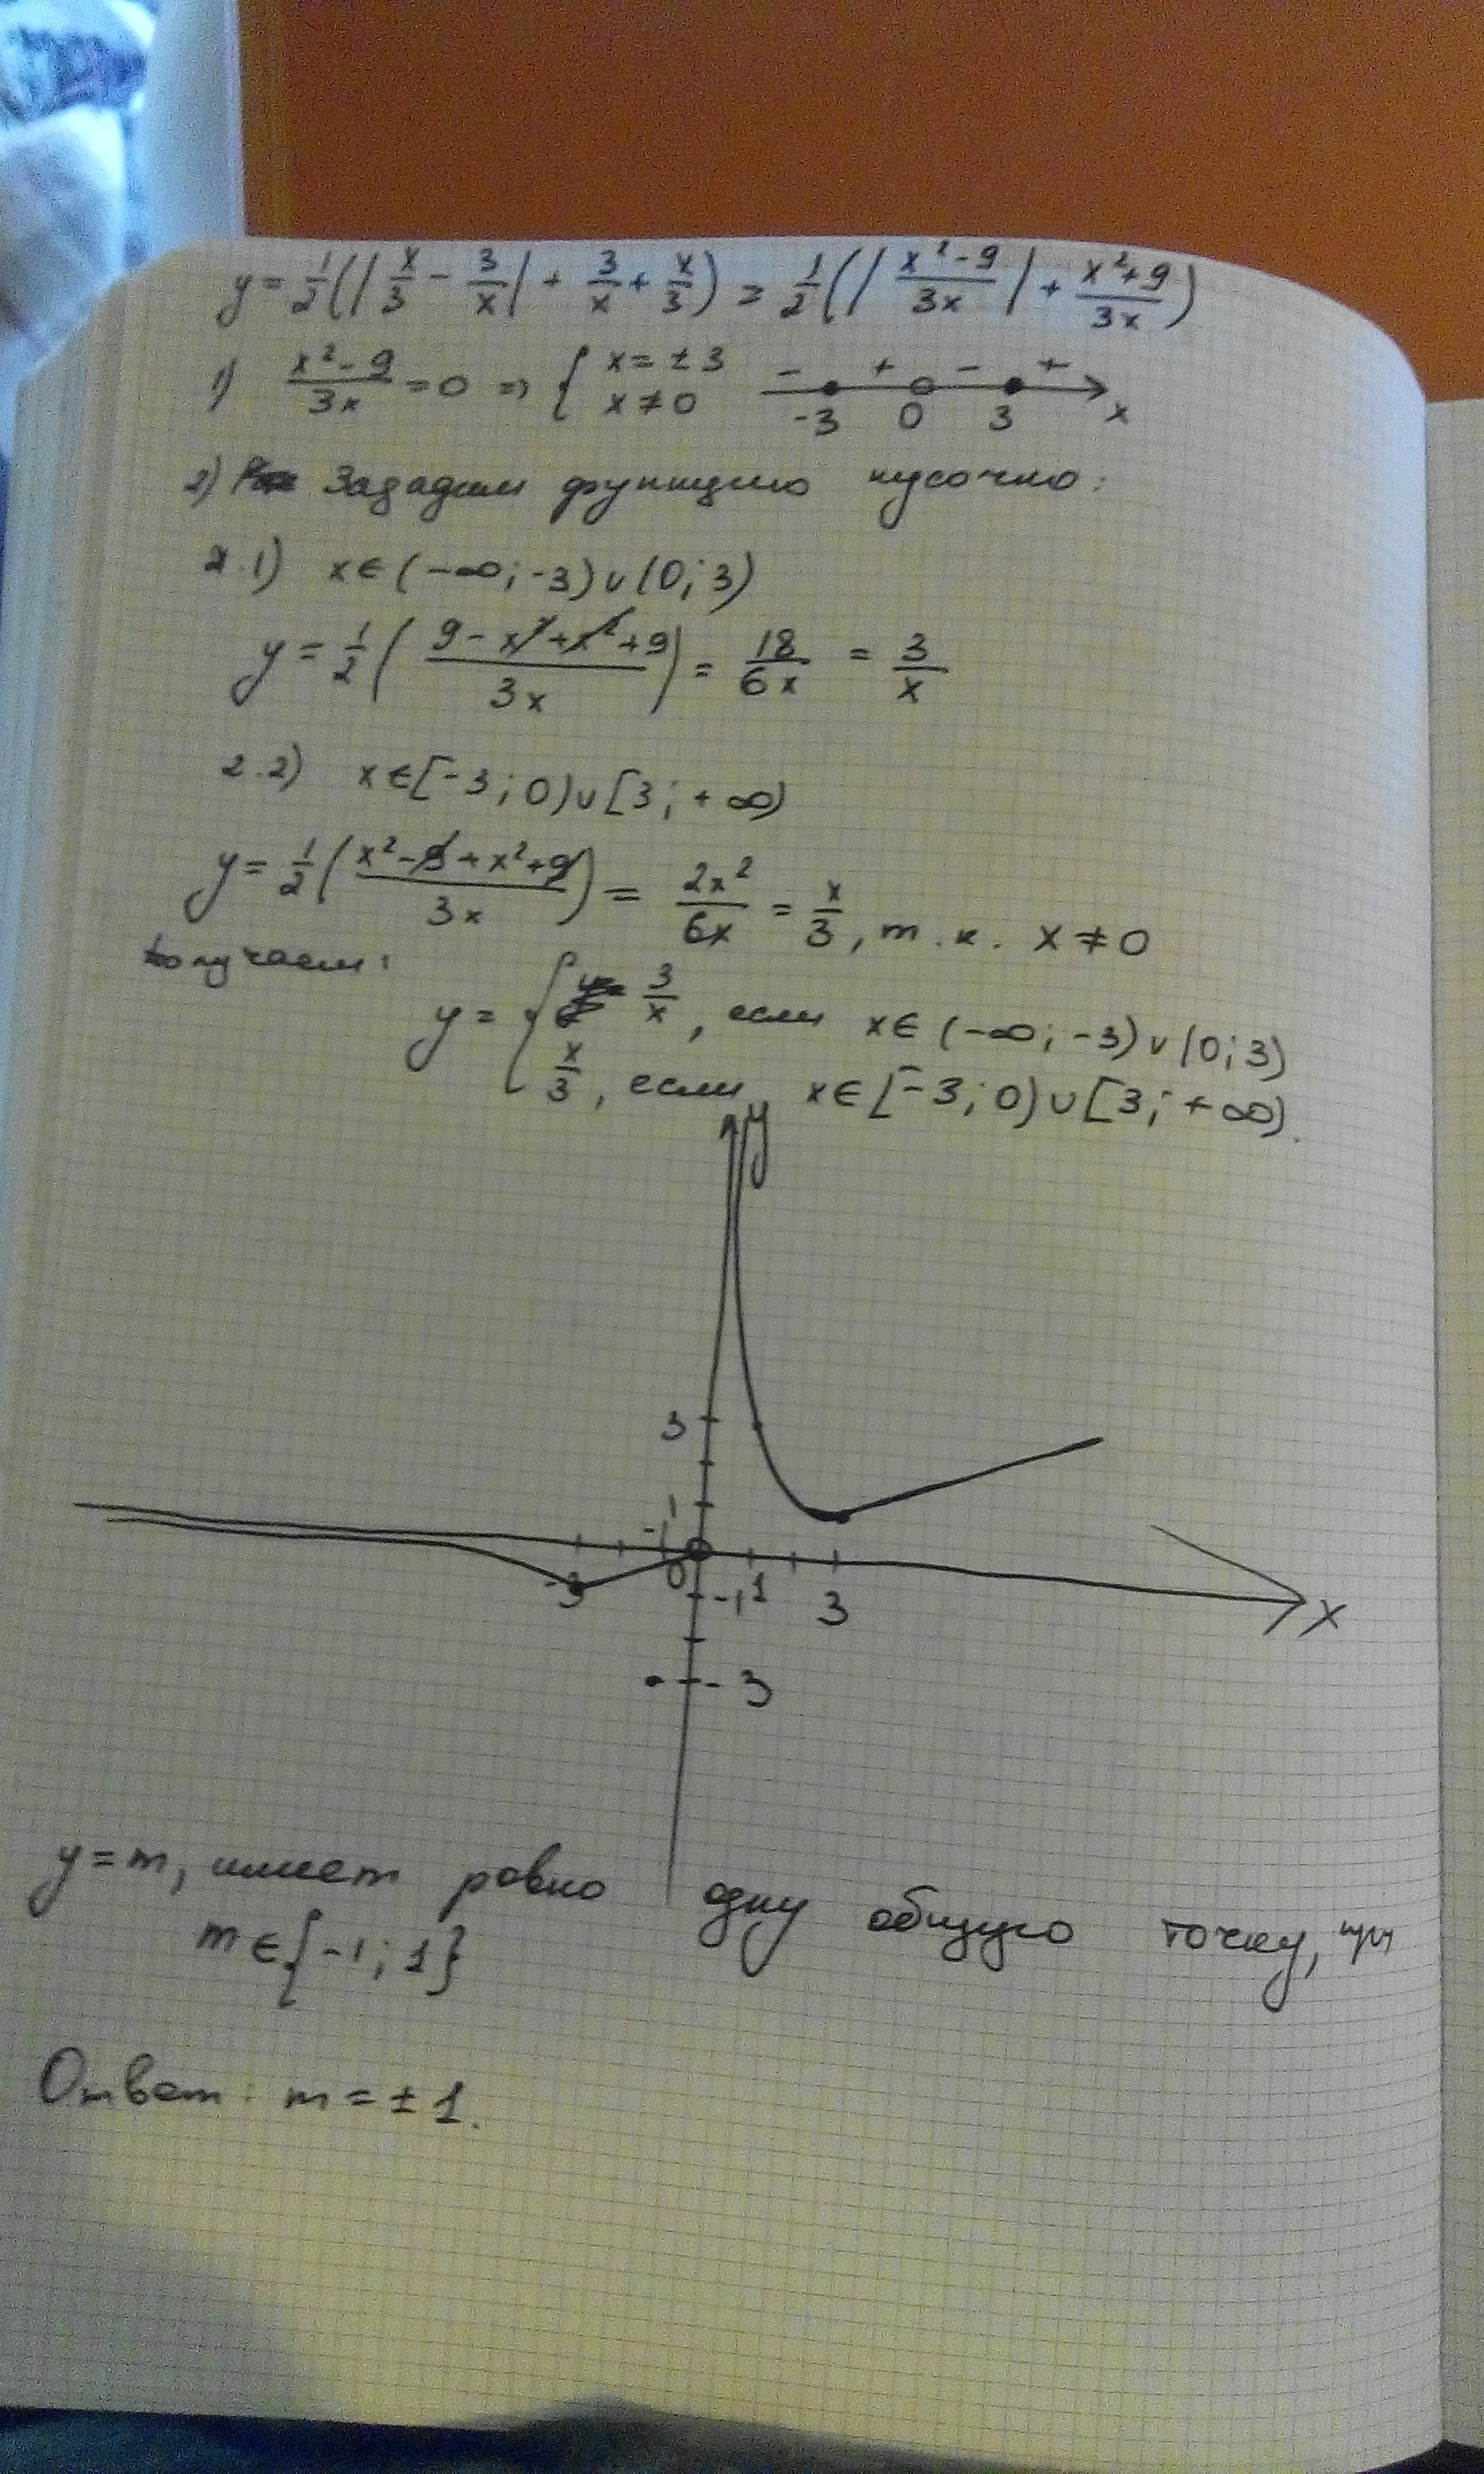 y = 1/2 (|x/3 - 3/x| + 3/x + x/3) = 1/2 (|(x²-9)/(3x)| + (x²+9)/(3x))
1) (x²-9)/(3x) = 0 => { x = ±3 x ≠ 0 - + - +
-3 0 3 x
2) Зададим функцию кусочно:
2.1) x ∈ (-∞; -3) ∪ (0; 3)
y = 1/2 ((9 - x² + x² + 9)/(3x)) = 18/(6x) = 3/x
2.2) x ∈ [-3; 0) ∪ [3; +∞)
y = 1/2 ((x² - 9 + x² + 9)/(3x)) = 2x²/(6x) = x/3, т.к. x ≠ 0
Получаем:
y = { 3/x, если x ∈ (-∞; -3) ∪ (0; 3)
x/3, если x ∈ [-3; 0) ∪ [3; +∞).
y
3
1
-1
-3 0 -1 1 3 x
-3
y = m, имеет ровно одну общую точку, при
m ∈ {-1; 1}
Ответ: m = ± 1.